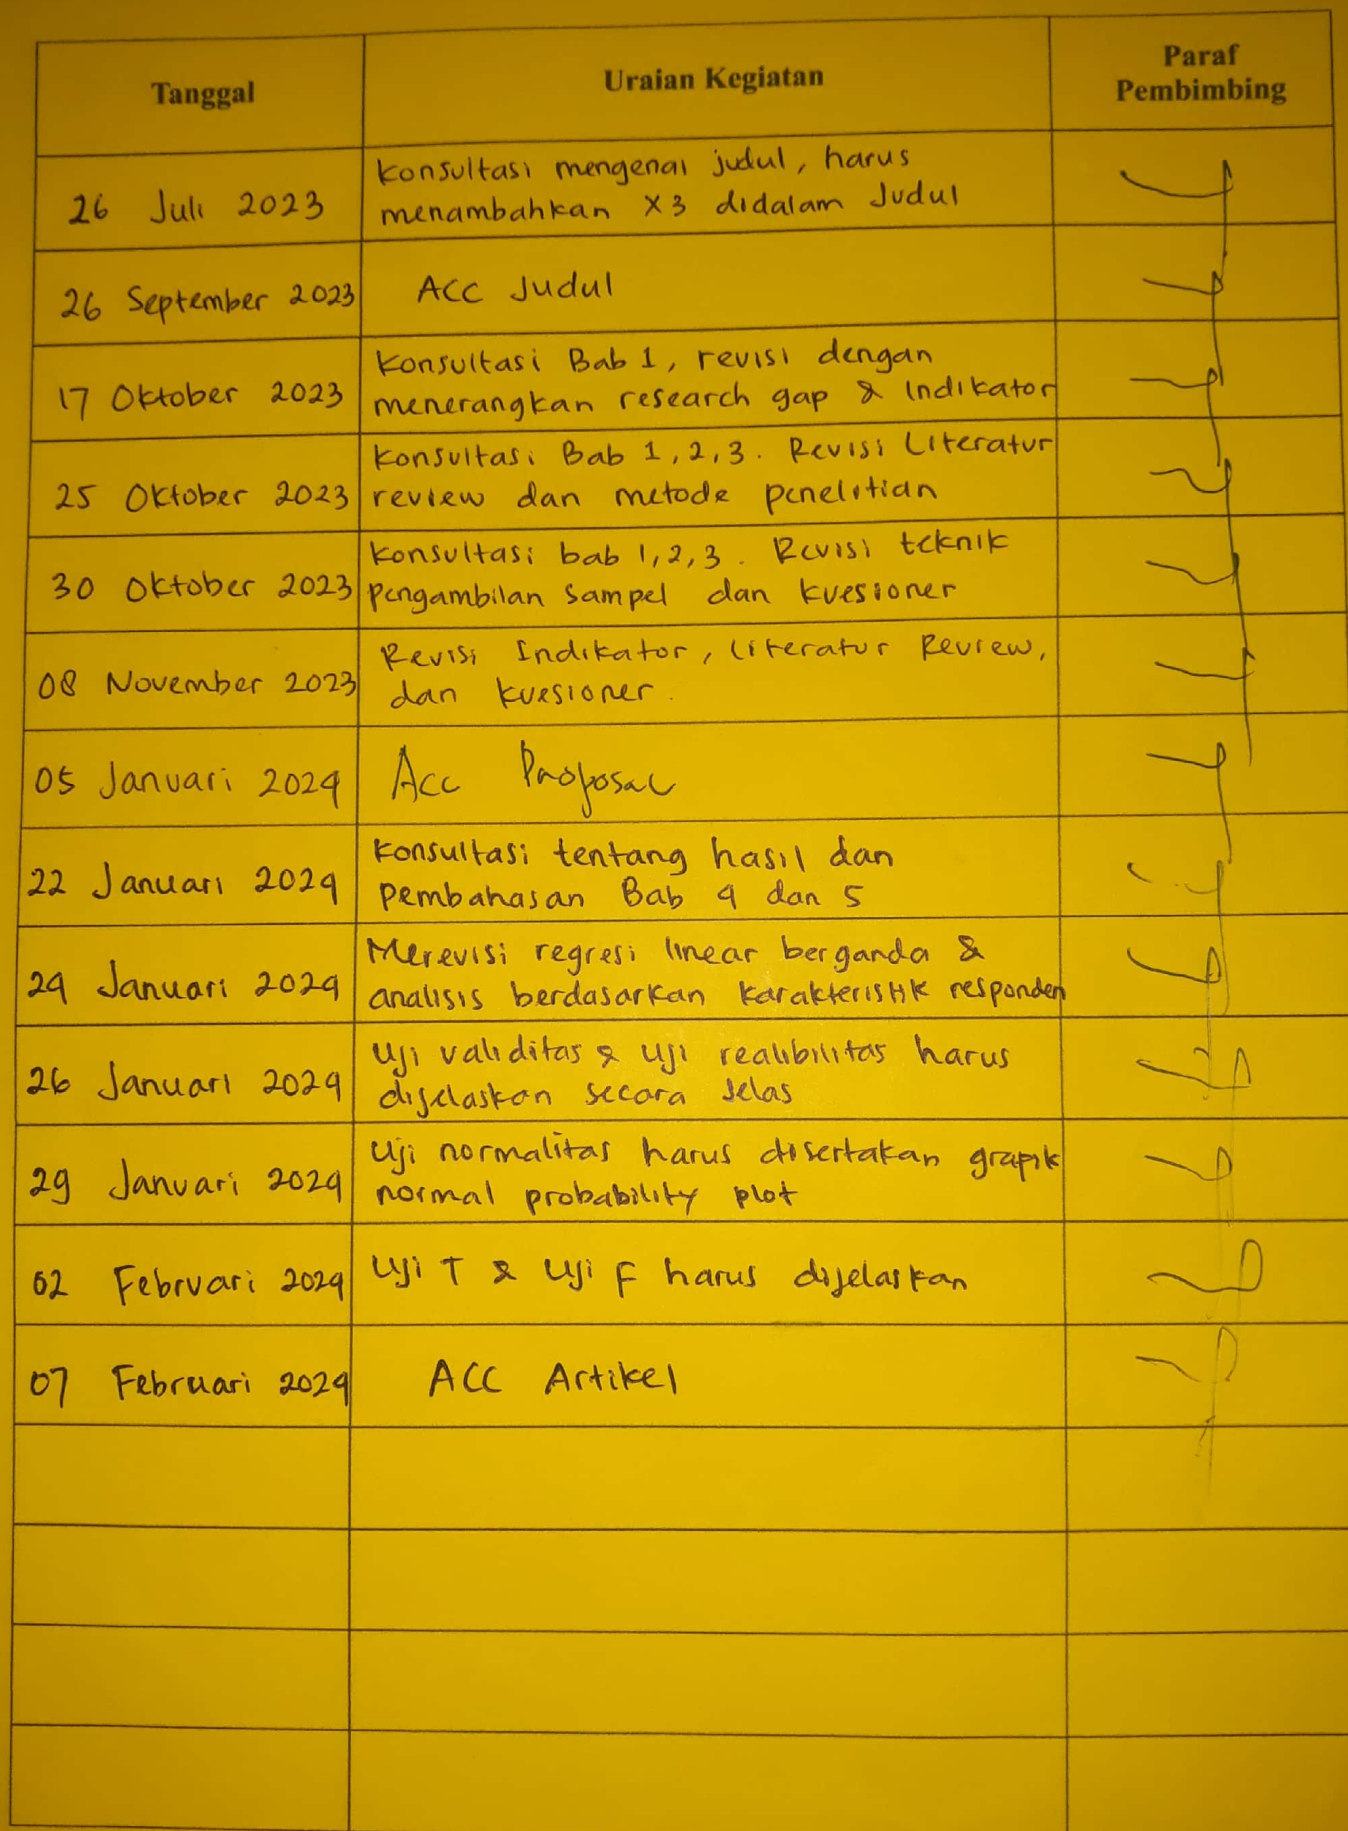 Tanggal
Uraian Kegiatan
Paraf
Pembimbing
26 Juli 2023
Konsultasi mengenai judul, harus
menambahkan X3 didalam Judul
26 September 2023
ACC Judul
17 Oktober 2023
Konsultasi Bab 1, revisi dengan
menerangkan research gap & Indikator
25 Oktober 2023
Konsultasi Bab 1,2,3. Revisi Literatur
review dan metode penelitian
30 Oktober 2023
Konsultasi bab 1,2,3. Revisi teknik
pengambilan Sampel dan kuesioner
08 November 2023
Revisi Indikator, literatur Review,
dan kuesioner.
05 Januari 2024
Acc Proposal
22 Januari 2024
Konsultasi tentang hasil dan
Pembahasan Bab 4 dan 5
24 Januari 2024
Merevisi regresi linear berganda &
analisis berdasarkan karakteristik responden
26 Januari 2024
Uji validitas & uji realibilitas harus
dijelaskan secara jelas
29 Januari 2024
Uji normalitas harus disertakan grapik
normal probability plot
02 Februari 2024
Uji T & Uji F harus dijelaskan
07 Februari 2024
ACC Artikel